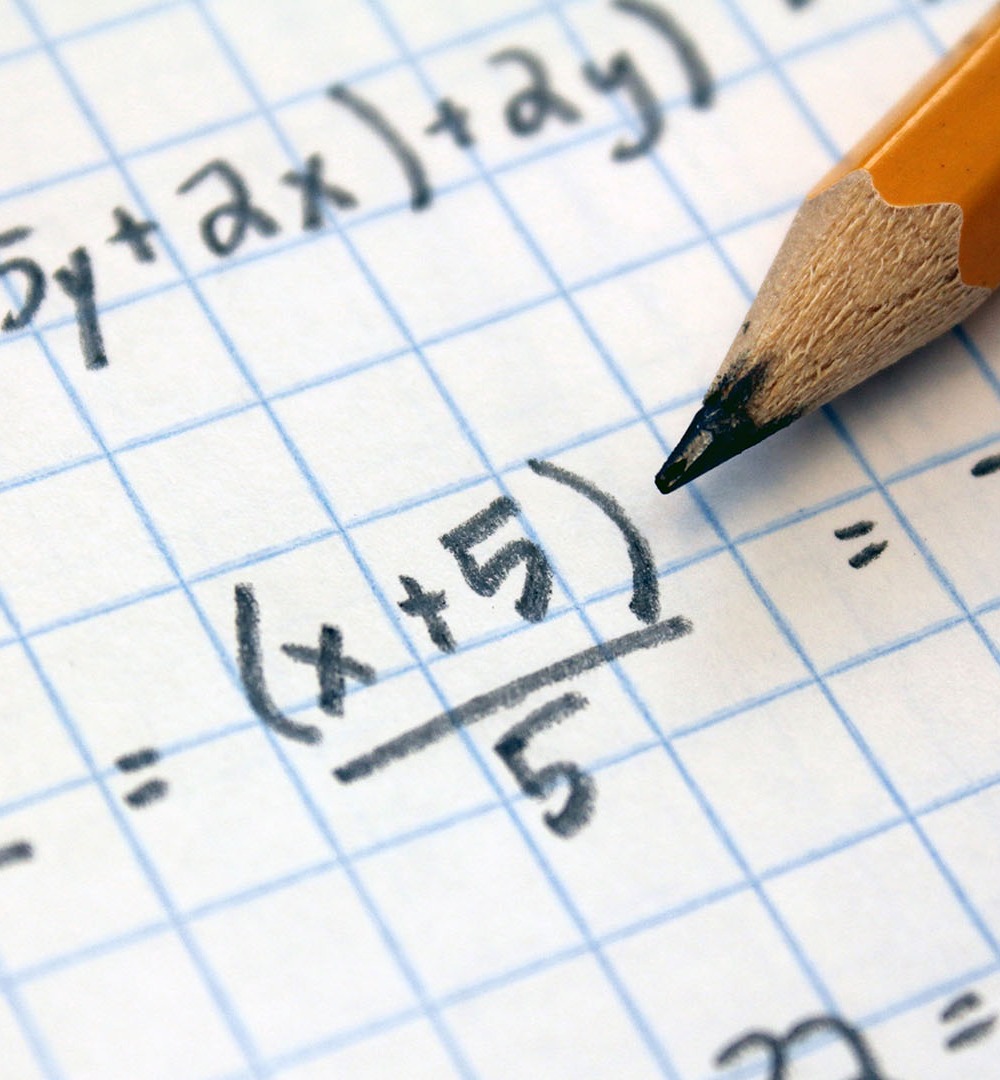 5y+2x)+2y)
= (x+5)/5 =
=